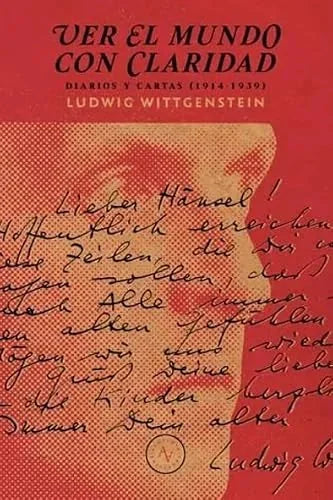 VER EL MUNDO
CON CLARIDAD
DIARIOS Y CARTAS (1914-1939)
LUDWIG WITTGENSTEIN
Lieber Hänsel!
Hoffentlich erreichen
Zeilen, die Dir
sollen, daß
Alle immer
alten Gefühlen
wir uns wied
Gruß Deine liebe
die Kinder herzl
immer Dein alter
Ludwig W